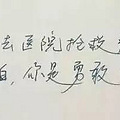 去医院抢救
自,你是勇敢